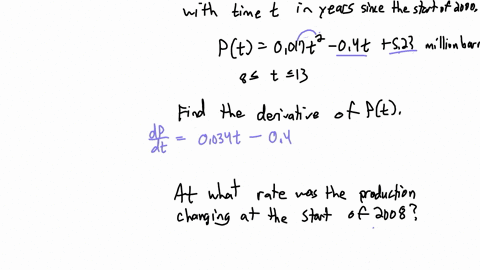 with time t in years since the start of 2000,
P(t) = 0.017t² - 0.4t + 5.23 million barr
8 ≤ t ≤ 13
Find the derivative of P(t).
dP/dt = 0.034t - 0.4
At what rate was the production
changing at the start of 2008?